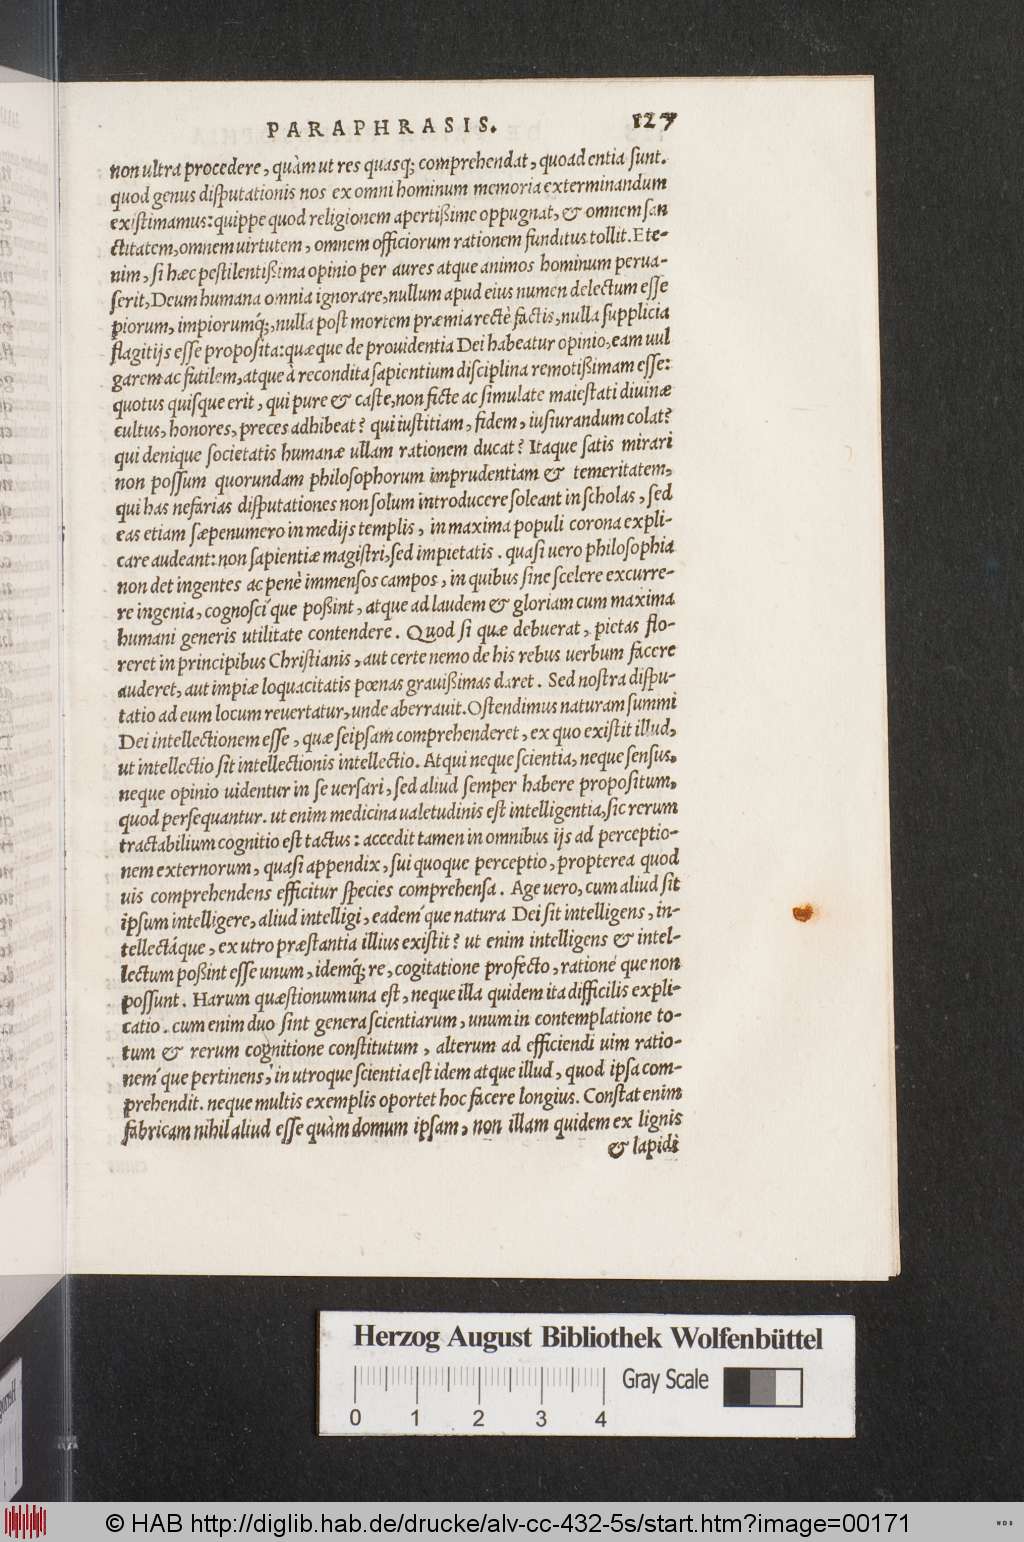 PARAPHRASIS. 127
non ultra procedere, quàm ut res quasq; comprehendat, quoad entia ſunt.
quod genus diſputationis nos ex omni hominum memoria exterminandum
exiſtimamus: quippe quod religionem apertißime oppugnat, & omnem ſan
ctitatem, omnem uirtutem, omnem officiorum rationem funditus tollit. Ete-
nim, ſi hæc peſtilentißima opinio per aures atque animos hominum perua-
ſerit, Deum humana omnia ignorare, nullum apud eius numen delectum eſſe
piorum, impiorumq́;, nulla poſt mortem præmia rectè factis, nulla ſupplicia
flagitijs eſſe propoſita: quæque de prouidentia Dei habeatur opinio, eam uul
garem ac futilem, atque à recondita ſapientium diſciplina remotißimam eſſe:
quotus quiſque erit, qui pure & caſte, non ficte ac ſimulate maieſtati diuinæ
cultus, honores, preces adhibeat? qui iuſtitiam, fidem, iuſiurandum colat?
qui denique ſocietatis humanæ ullam rationem ducat? Itaque ſatis mirari
non poſſum quorundam philoſophorum imprudentiam & temeritatem,
qui has nefarias diſputationes non ſolum introducere ſoleant in ſcholas, ſed
eas etiam ſæpenumero in medijs templis, in maxima populi corona expli-
care audeant: non ſapientiæ magiſtri, ſed impietatis. quaſi uero philoſophia
non det ingentes ac penè immenſos campos, in quibus ſine ſcelere excurre-
re ingenia, cognoſci´que poßint, atque ad laudem & gloriam cum maxima
humani generis utilitate contendere. Quod ſi quæ debuerat, pietas flo-
reret in principibus Chriſtianis, aut certe nemo de his rebus uerbum facere
auderet, aut impiæ loquacitatis pœnas grauißimas daret. Sed noſtra diſpu-
tatio ad eum locum reuertatur, unde aberrauit. Oſtendimus naturam ſummi
Dei intellectionem eſſe, quæ ſeipſam comprehenderet, ex quo exiſtit illud,
ut intellectio ſit intellectionis intellectio. Atqui neque ſcientia, neque ſenſus,
neque opinio uidentur in ſe uerſari, ſed aliud ſemper habere propoſitum,
quod perſequantur. ut enim medicina ualetudinis eſt intelligentia, ſic rerum
tractabilium cognitio eſt tactus: accedit tamen in omnibus ijs ad perceptio-
nem externorum, quaſi appendix, ſui quoque perceptio, propterea quod
uis comprehendens efficitur ſpecies comprehenſa. Age uero, cum aliud ſit
ipſum intelligere, aliud intelligi, eadem´que natura Dei ſit intelligens, in-
tellectáque, ex utro præſtantia illius exiſtit? ut enim intelligens & intel-
lectum poßint eſſe unum, idemq́; re, cogitatione profecto, rationé que non
poſſunt. Harum quæſtionum una eſt, neque illa quidem ita difficilis expli-
catio. cum enim duo ſint genera ſcientiarum, unum in contemplatione to-
tum & rerum cognitione conſtitutum, alterum ad efficiendi uim ratio-
nem´que pertinens, in utroque ſcientia eſt idem atque illud, quod ipſa com-
prehendit. neque multis exemplis oportet hoc facere longius. Conſtat enim
fabricam nihil aliud eſſe quàm domum ipſam, non illam quidem ex lignis
& lapidi
Herzog August Bibliothek Wolfenbüttel
Gray Scale
0 1 2 3 4
© HAB http://diglib.hab.de/drucke/alv-cc-432-5s/start.htm?image=00171